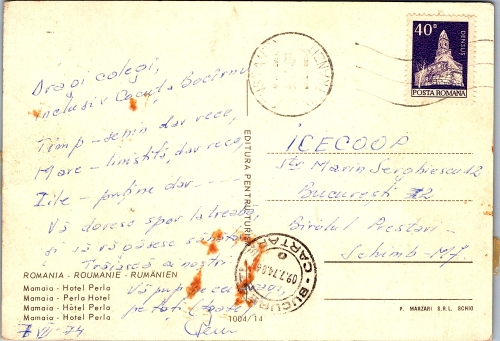 Dragi colegi,
inclusiv Cucu, Bocîrnu
Timp - senin dar rece,
Mare - liniştită, dar rece,
Zile - puţine dar - - -
Vă doresc spor la treabă
şi să vă găsesc sănătoşi
Trăiască ai noştri
Vă pup
ROMANIA - ROUMANIE - RUMÄNIEN
Mamaia - Hotel Perla
Mamaia - Perla Hotel
Mamaia - Hôtel Perla
Mamaia - Hotel Perla
7 VII-74
EDITURA PENTRU TURISM
1004/14
40B
DENSUŞ
POSTA ROMANA
ICECOOP
Str Marin Serghiescu 12
Bucureşti
Biroul Prestari
Schimb
BUCUREŞTI
CARTARE
09.7.74
P. MARZARI S.R.L. SCHIO